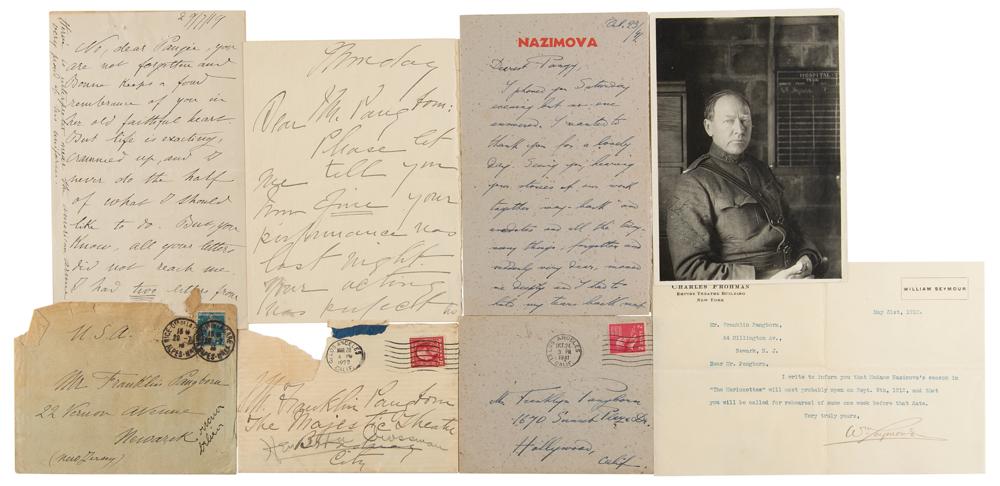 29/7/19
No, dear Pangie, you
are not forgotten and
Bonne keeps a fond
remembrance of you in
her old faithful heart.
But life is exacting,
crammed up, and I
never do the half
of what I should
like to do. But, you
know, all your letters
did not reach me.
I had two letters from
U.S.A.
Mr Franklin Pangborn
22 Vernon Avenue
Newark
(New Jersey)
Monday
Dear Mr. Pangborn:
Please let
me tell you
how fine your
performance was
last night.
Your acting
was perfect
LOS ANGELES
CALIF.
Mr. Franklin Pangborn
The Majestic Theatre
City
Oct. 23/41
NAZIMOVA
Dearest Pangy
I phoned you Saturday
evening but no one
answered. I wanted to
thank you for a lovely
day. Seeing you, hearing
your stories of our work
together way-back and
and all the tiny
many things, forgotten and
suddenly very dear, moved
me deeply and I had to
my tears back
LOS ANGELES
OCT 24
5 PM
1941
CALIF.
Mr Franklyn Pangborn
1570 Sunset Plaza Dr.
Hollywood,
Calif.
HOSPITAL
CHARLES FROHMAN
EMPIRE THEATRE BUILDING
NEW YORK
WILLIAM SEYMOUR
May 31st, 1912.
Mr. Franklin Pangborn,
84 Millington Av.,
Newark, N. J.
Dear Mr. Pangborn,
I write to inform you that Madame Nazimova's season in
"The Marionettes" will most probably open on Sept. 9th, 1912, and that
you will be called for rehearsal of same one week before that date.
Very truly yours,
Wm Seymour